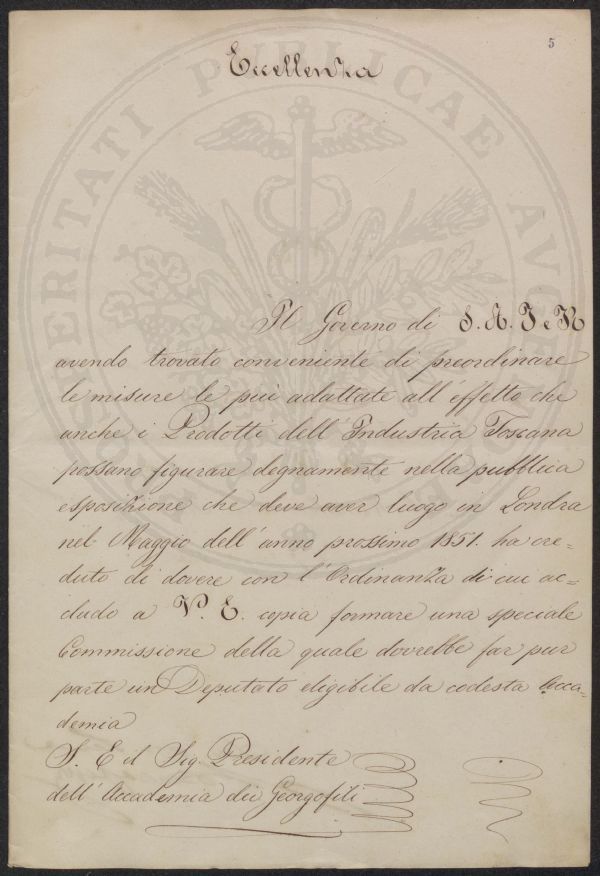 5
Eccellenza
Il Governo di S. A. I e R
avendo trovato conveniente di preordinare
le misure le piú adattate all' effetto che
anche i Prodotti dell' Industria Toscana
possano figurare degnamente nella pubblica
esposizione che deve aver luogo in Londra
nel Maggio dell' anno prossimo 1851. ha cre=
duto di dovere con l' Ordinanza di cui ac=
cludo a V. E. copia formare una speciale
Commissione della quale dovrebbe far pur
parte un Deputato eligibile da codesta Acca-
demia
S. E il Sig. Presidente
dell' Accademia dei Georgofili
PROSPERITATI PVBLICAE AVGENDAE